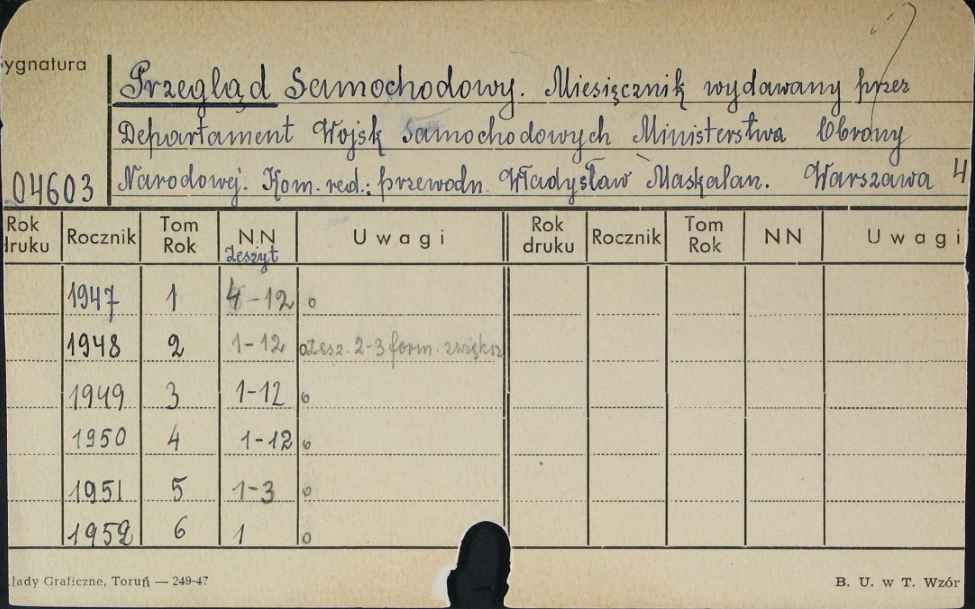 ygnatura
Przegląd Samochodowy. Miesięcznik wydawany przez
Departament Wojsk Samochodowych Ministerstwa Obrony
04603 Narodowej. Kom. red.: przewodn. Władysław Maskalan. Warszawa 4
Rok druku Rocznik Tom Rok N.N Zeszyt Uwagi Rok druku Rocznik Tom Rok NN Uwagi
1947 1 4-12 o
1948 2 1-12 o Zesz. 2-3 form. zwiększ
1949 3 1-12 o
1950 4 1-12 o
1951 5 1-3 o
1952 6 1 o
łady Graficzne, Toruń — 249-47 B. U. w T. Wzór